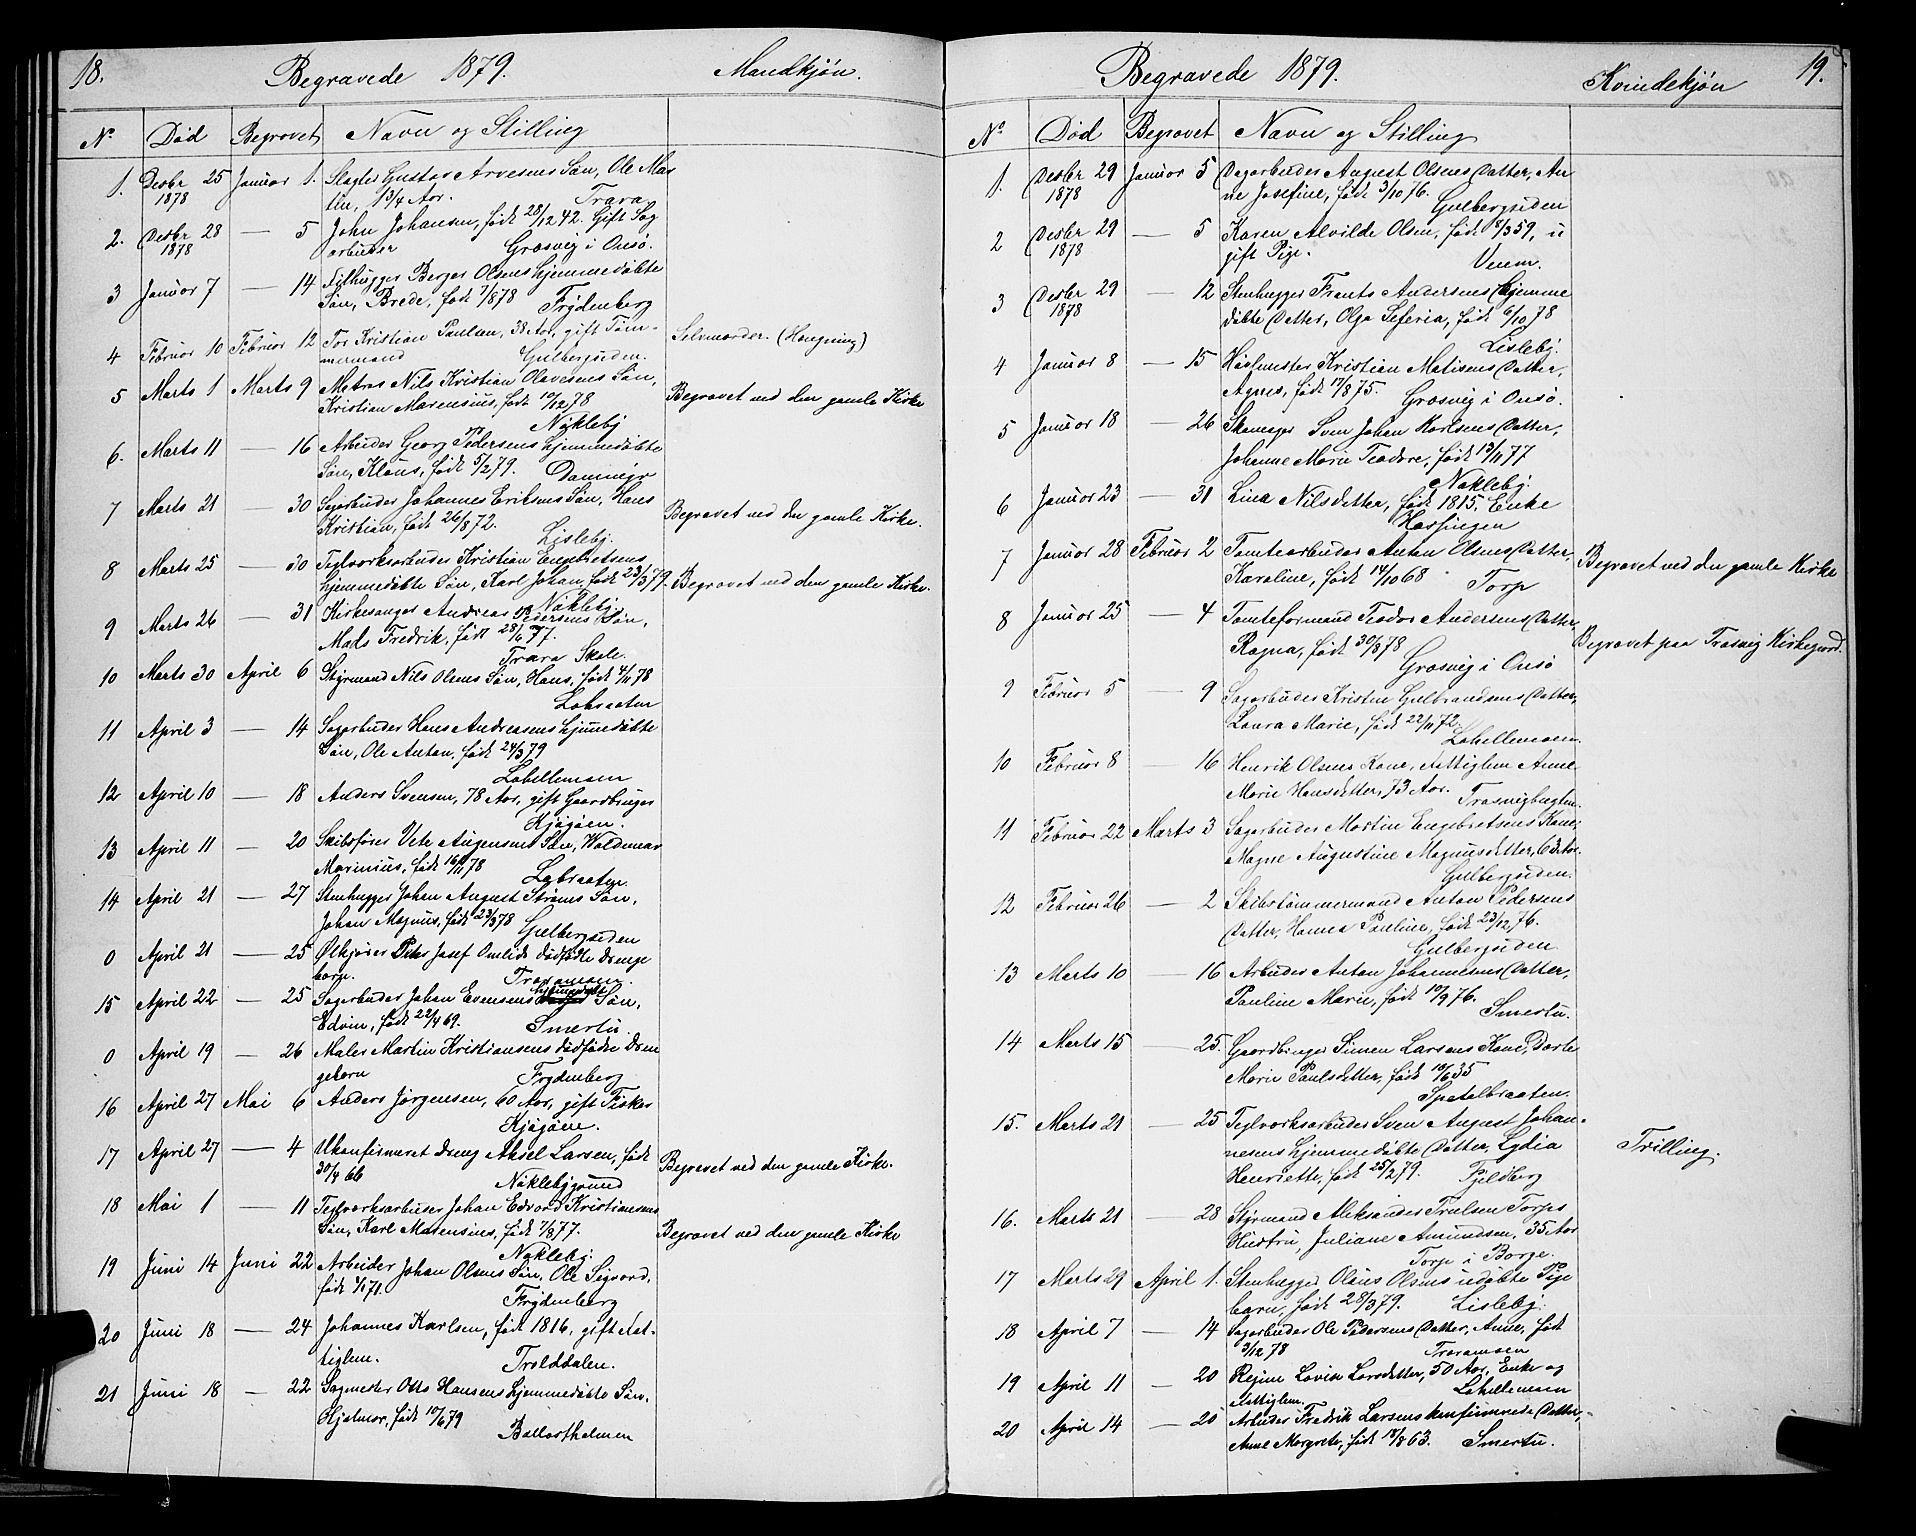 18.
Begravede 1879.
Mandkjøn.
No Død Begravet Navn og Stilling
1. Desbr 25 1878 Januar 1. Slagter Gustav Arvesens Søn, Ole Mar
tin, 1 3/4 Aar. Trara.
2. Desbr 28 1878 — 5 John Johansen, født 28/12 42. Gift Sag
arbeider Græsvig i Onsø.
3 Januar 7 — 14 Filhugger Berger Olsens hjemmedøbte
Søn, Brede, født 1/8 78 Frydenberg
4 Februar 10 Februar 12 Tor Kristian Paulsen, 38 Aar, gift Tøm-
mermand Gulbergsiden. Selvmorder. (Hængning)
5 Marts 1 Marts 9 Matros Nils Kristian Olavesens Søn,
Kristian Marensius, født 10/12 78 Begravet ved den gamle Kirke
Nøklebÿ
6. Marts 11 — 16 Arbeider Georg Pedersens hjemmedøbte
Søn, Klaus, født 5/2 79. Dammÿr
7 Marts 21 — 30 Sagarbeider Johannes Eriksens Søn, Hans
Kristian, født 26/8 72. Begravet ved den gamle Kirke.
Lislebÿ.
8 Marts 25 — 30 Teglværksarbeider Kristian Engebretsens
hjemmedøbte Søn, Karl Johan, født 23/3 79. Begravet ved den gamle Kirke.
Nøklebÿ.
9 Marts 26 — 31 Kirkesanger Andreas Pedersens Søn,
Mads Fredrik, født 28/6 77.
Trara Skole.
10 Marts 30 April 6 Stÿrmand Nils Olsens Søn, Hans, født 4/11 78
Labraaten
11 April 3 — 14 Sagarbeider Hans Andreasens hjemmedøbte
Søn, Ole Anton, født 24/3 79
Lahellemoen
12 April 10 — 18 Anders Svensen, 78 Aar, gift Gaardbruger
Kjøgøen.
13 April 11 — 20 Skibsfører Vete Augensens Søn, Waldemar
Marinius, født 16/11 78
Labraaten.
14 April 21 — 27 Stenhugger Johan August Strøms Søn,
Johan Magnus, født 23/9 78 Gulbergsiden
0 April 21 — 25 Ølkjører Peter Josef Omlids dødfødte Drenge
barn. Traramoen.
15 April 22 — 25 Sagarbeider Johan Evensens hjemmedøbt Søn,
Edvin, født 22/4 69. Smertu.
0 April 19 — 26 Maler Martin Kristiansens dødfødte Dren
gebarn Frydenberg
16 April 27 Mai 6 Anders Jørgensen, 60 Aar, gift Fisker
Kjøgøen.
17 April 27 — 4 Ukonfirmeret Dreng Aksel Larsen, født
30/4 66 Nøklebÿgrund Begravet ved den gamle Kirke.
18 Mai 1 — 11 Teglværksarbeider Johan Edvard Kristiansens
Søn, Karl Marensius, født 7/8 77. Begravet ved den gamle Kirke
Nøklebÿ.
19 Juni 14 Juni 22 Arbeider Johan Olsens Søn, Ole Sigvard,
født 1/1 71. Frÿdenberg
20 Juni 18 — 24 Johannes Karlsen, født 1816, gift Fat-
tiglem. Trolddalen.
21 Juni 18 — 22 Sagmester Otto Hansens hjemmedøbte Søn,
Hjalmar, født 10/6 79
Ballastholmen
Begravede 1879.
Kvindekjøn
19.
No Død Begravet Navn og Stilling
1. Desbr 29 1878 Januar 5 Sagarbeider August Olsens Datter, An
ne Josefine, født 3/10 76. Gulbergsiden
2 Desbr 29 1878 — 5 Karen Alvilde Olsen, født 8/3 59, u
gift Pige. Veum.
3 Desbr 29 1878 — 12 Stenhugger Frants Andersens hjemme
døbte Datter, Olga Seferia, født 6/10 78
Lislebÿ.
4 Januar 8 — 15 Kristian Matisens Datter,
Agnes, født 17/8 75. Græsvig i Onsø.
5 Januar 18 — 26 Skomager Sven Johan Karlsens Datter,
Johanne Marie Teodore, født 13/11 77
Nøklebÿ.
6 Januar 23 — 31 Lina Nilsdatter, født 1815, Enke
Hassingen
7 Januar 28 Februar 2 Tomtearbeider Anton Olsens Datter,
Karoline, født 14/10 68 Torp Begravet ved den gamle Kirke
8 Januar 25 — 4 Tomteformand Teodor Andersens Datter,
Ragna, født 30/8 78 Begravet paa Trosvig Kirkegaard.
Græsvig i Onsø
9 Februar 5 — 9 Sagarbeider Kristen Gulbrandsens Datter,
Laura Marie, født 22/11 72.
Lahellemoen.
10 Februar 8 — 16 Henrik Olsens Kone, Fattiglem Anne
Marie Hansdatter, 73 Aar. Trosvigbugten.
11 Februar 22 Marts 3 Sagarbeider Martin Engebretsens Kone,
Magne Augustine Magnusdatter, 63 Aar.
Gulbergsiden.
12 Februar 26 — 2 Skibstømmermand Anton Pedersens
Datter, Hanna Pauline, født 23/12 76.
Gulbergsiden
13 Marts 10 — 16 Arbeider Anton Johannesens Datter,
Pauline Marie, født 10/9 76.
Smertu.
14 Marts 15 — 25. Gaardbruger Simen Larsens Kone, Dorte
Marie Paulsdatter, født 10/6 35
Spetalbraaten.
15. Marts 21 — 25 Teglværksarbeider Sven August Johan-
nesens hjemmedøbte Datter, Lydia Trilling.
Henriette, født 25/2 79. Fjeldberg
16. Marts 21 — 28 Stÿrmand Aleksander Trulsen Torps
Hustru, Juliane Amundsen, 35 Aar
Torp i Borge.
17 Marts 29 April 1. Stenhugger Olaus Olsens udøbte Pige
barn, født 28/3 79. Lislebÿ.
18 April 7 — 14 Sagarbeider Ole Pedersens Datter, Anne, født
3/12 78 Traramoen
19 April 11 — 20 Regine Lovise Larsdatter, 50 Aar, Enke og
Fattiglem. Lahellemoen
20 April 14 — 20 Arbeider Fredrik Larsens konfirmerede Datter,
Anne Margrete, født 18/8 63. Smertu.